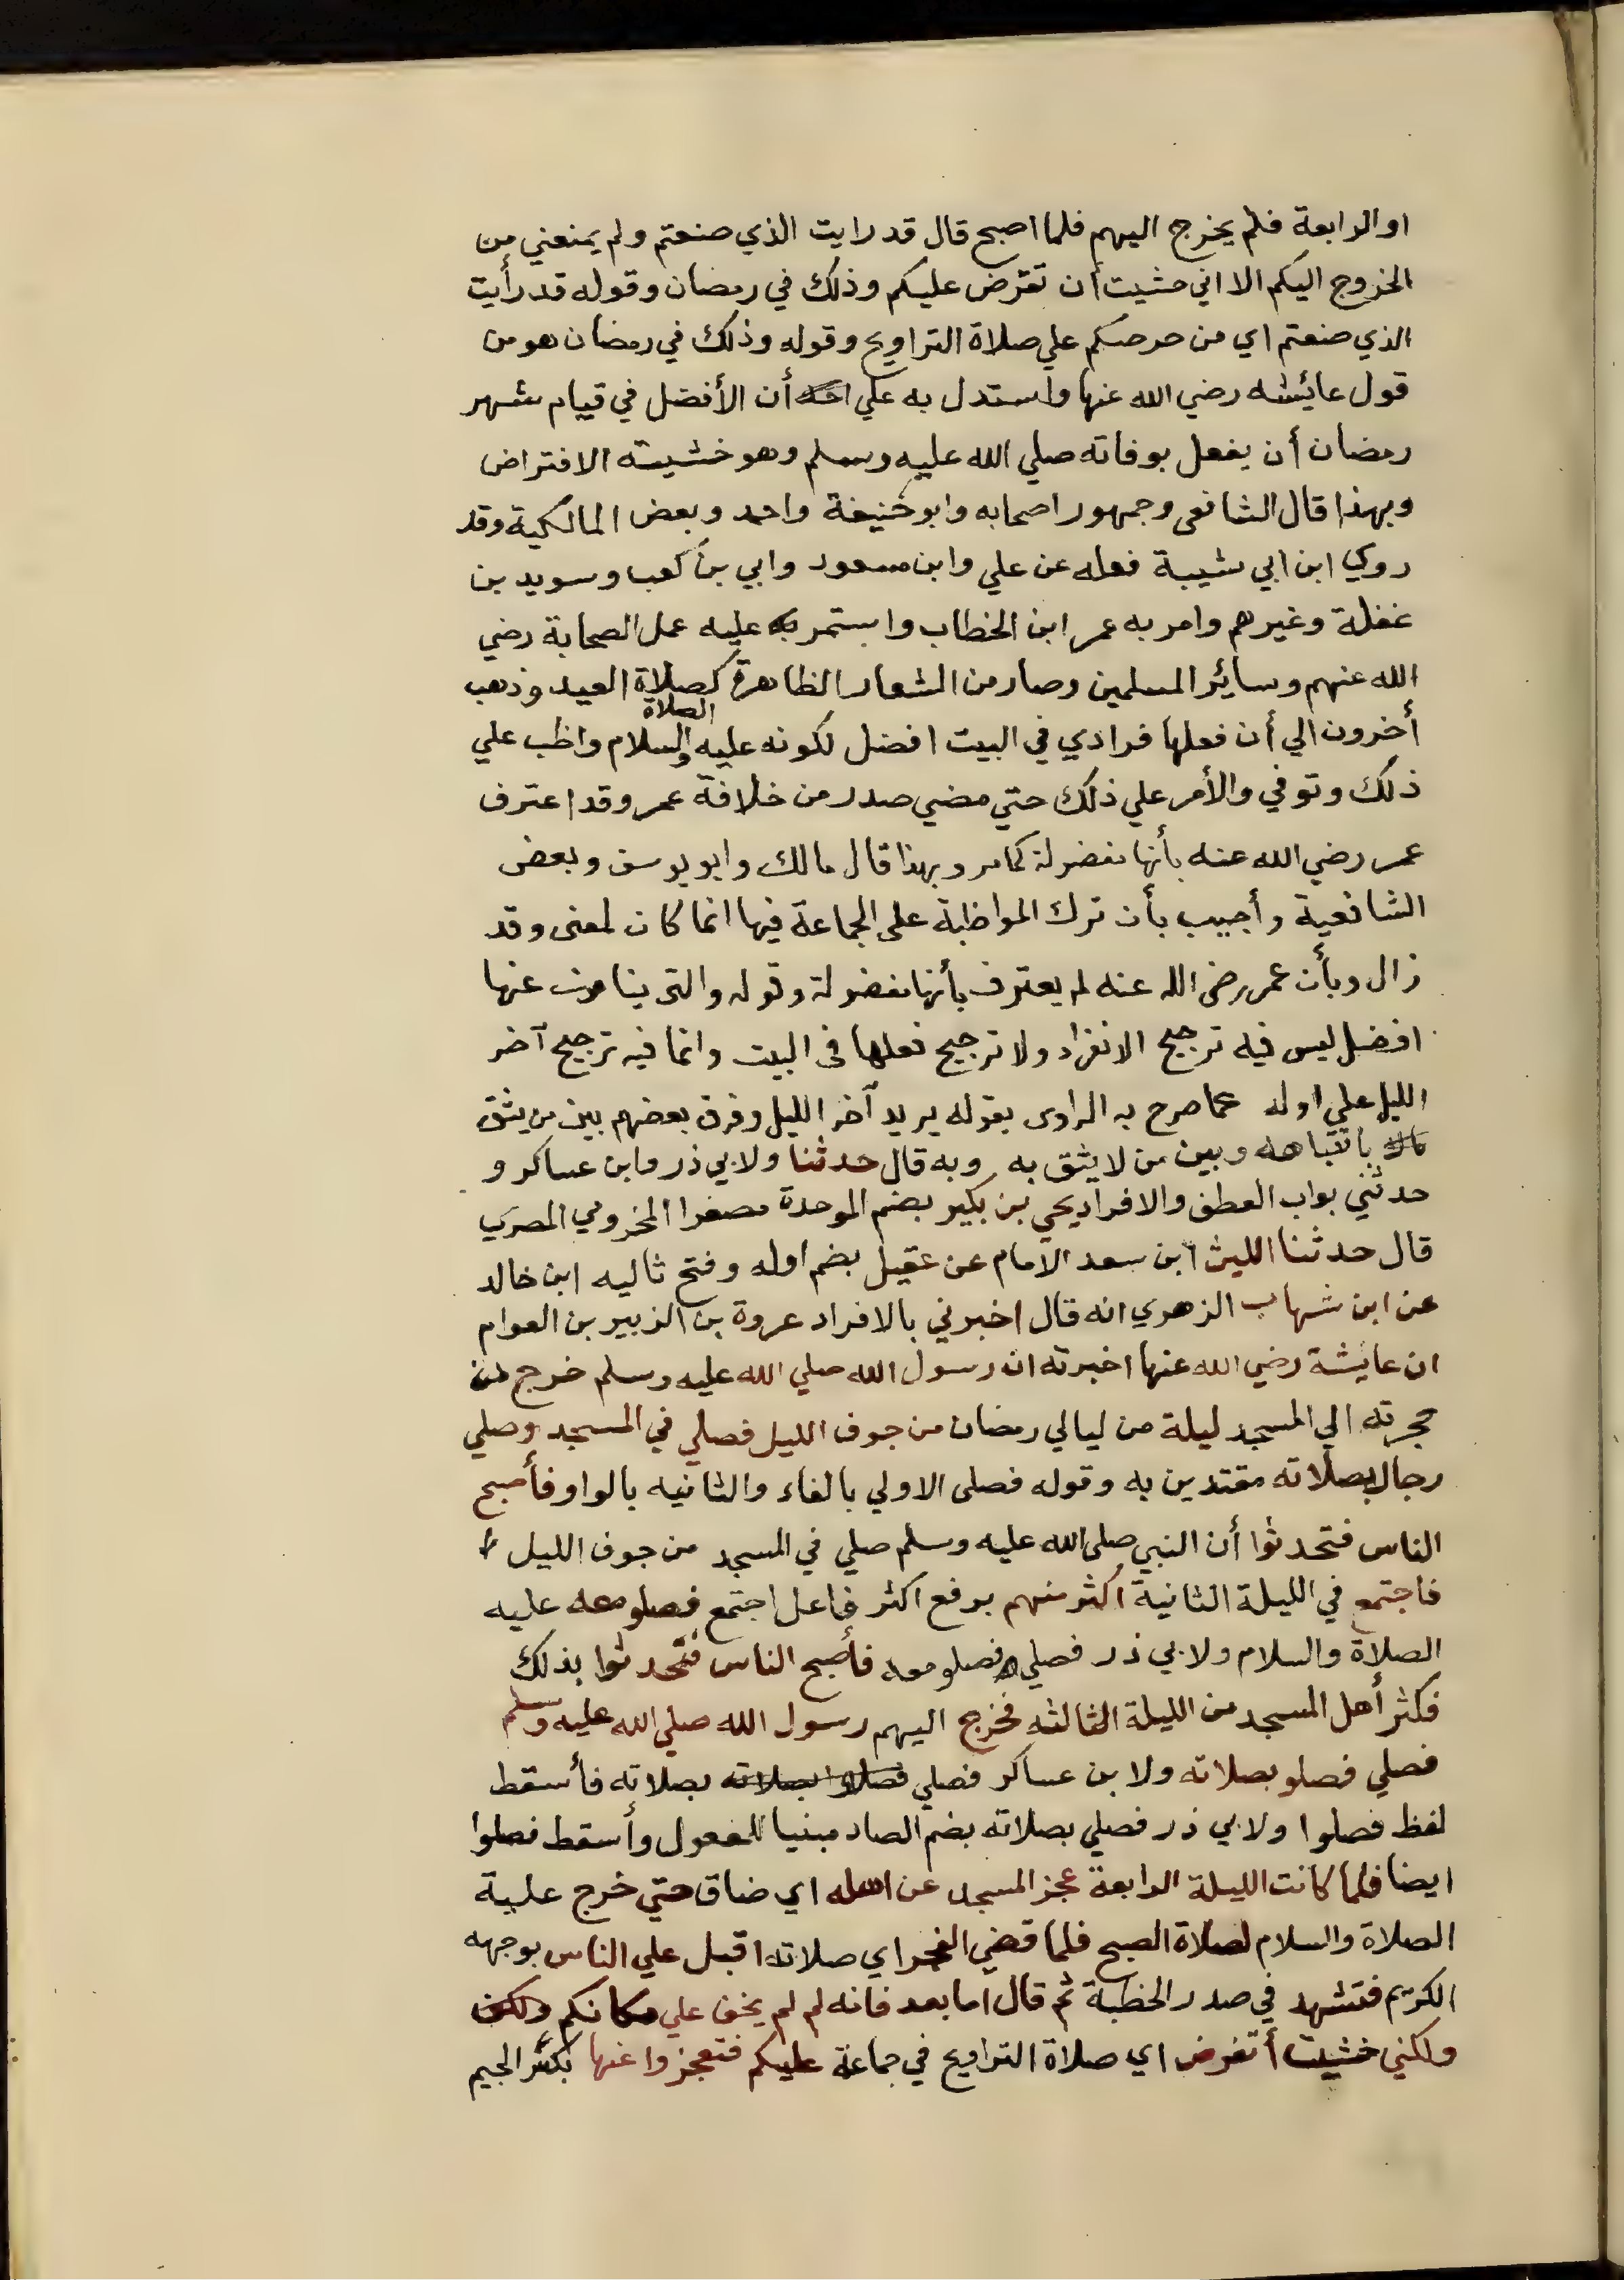 او الرابعة فلم يخرج اليهم فلما اصبح قال قد رايت الذي صنعتم ولم يمنعني من
الخروج اليكم الا اني خشيت أن تفترض عليكم وذلك في رمضان وقوله قد رأيت
الذي صنعتم اي من حرصكم علي صلاة التراويح وقوله وذلك في رمضان هو من
قول عائشه رضي الله عنها واستدل به علي أن الأفضل في قيام شهر
رمضان أن يفعل بوفاته صلي الله عليه وسلم وهو خشيته الافتراض
وبهذا قال الشافعى وجمهور اصحابه وابو حنيفة واحمد وبعض المالكية وقد
روي ابن ابي شيبة فعله عن علي وابن مسعود وابي بن كعب وسويد بن
غفلة وغيرهم وامر به عمر ابن الخطاب واستمر عليه عمل الصحابة رضي
الله عنهم وسائر المسلمين وصار من الشعار الظاهرة كصلاة العيد وذهب
أخرون الي أن فعلها فرادي في البيت افضل لكونه عليه الصلاة والسلام واظب علي
ذلك وتوفي والأمر علي ذلك حتي مضي صدر من خلافة عمر وقد اعترف
عمر رضي الله عنه بأنها مفضولة كما مر وبهذا قال مالك وابو يوسف وبعض
الشافعية وأجيب بأن ترك المواظبة على الجماعة فيها انما كان لمعنى وقد
زال وبأن عمر رضى الله عنه لم يعترف بأنها مفضولة وقوله والتى ينامون عنها
افضل ليس فيه ترجيح الانفراد ولا ترجيح فعلها فى البيت وانما فيه ترجيح آخر
الليل علي اوله كما صرح به الراوى بقوله يريد آخر الليل وفرق بعضهم بين من يثق
بانتباهه وبين من لا يثق به وبه قال حدثنا ولابي ذر وابن عساكر و
حدثني بواب العطف والافراد يحي بن بكير بضم الموحدة مصغرا المخزومي المصري
قال حدثنا الليث ابن سعد الامام عن عقيل بضم اوله وفتح ثاليه ابن خالد
عن ابن شهاب الزهري انه قال اخبرني بالافراد عروة بن الزبير بن العوام
ان عايشة رضي الله عنها اخبرته ان رسول الله صلي الله عليه وسلم خرج من
حجرته الي المسجد ليلة من ليالي رمضان من جوف الليل فصلي في المسجد وصلي
رجال بصلاته مقتدين به وقوله فصلى الاولي بالفاء والثانيه بالواو فأصبح
الناس فتحدثوا أن النبي صلى الله عليه وسلم صلي في المسجد من جوف الليل
فاجتمع في الليلة الثانية أكثر منهم برفع اكثر فاعل اجتمع فصلو معه عليه
الصلاة والسلام ولابي ذر فصلي فصلو معه فأصبح الناس فتحدثوا بذلك
فكثر أهل المسجد من الليلة الثالثه فخرج اليهم رسول الله صلي الله عليه وسلم
فصلي فصلو بصلاته ولابن عساكر فصلي فصلوا بصلاته بصلاته فأسقط
لفظ فصلوا ولابي ذر فصلي بصلاته بضم الصاد مبنيا للمفعول وأسقط فصلوا
ايضا فلما كانت الليلة الرابعة عجز المسجد عن اهله اي ضاق حتي خرج علية
الصلاة والسلام لصلاة الصبح فلما قضي الفجر اي صلاته اقبل علي الناس بوجهه
الكريم فتشهد في صدر الخطبة ثم قال اما بعد فانه لم لم يخف علي مكانكم ولكن
ولكني خشيت أ تفرض اي صلاة التراويح في جماعة عليكم فتعجزوا عنها بكسر الجيم